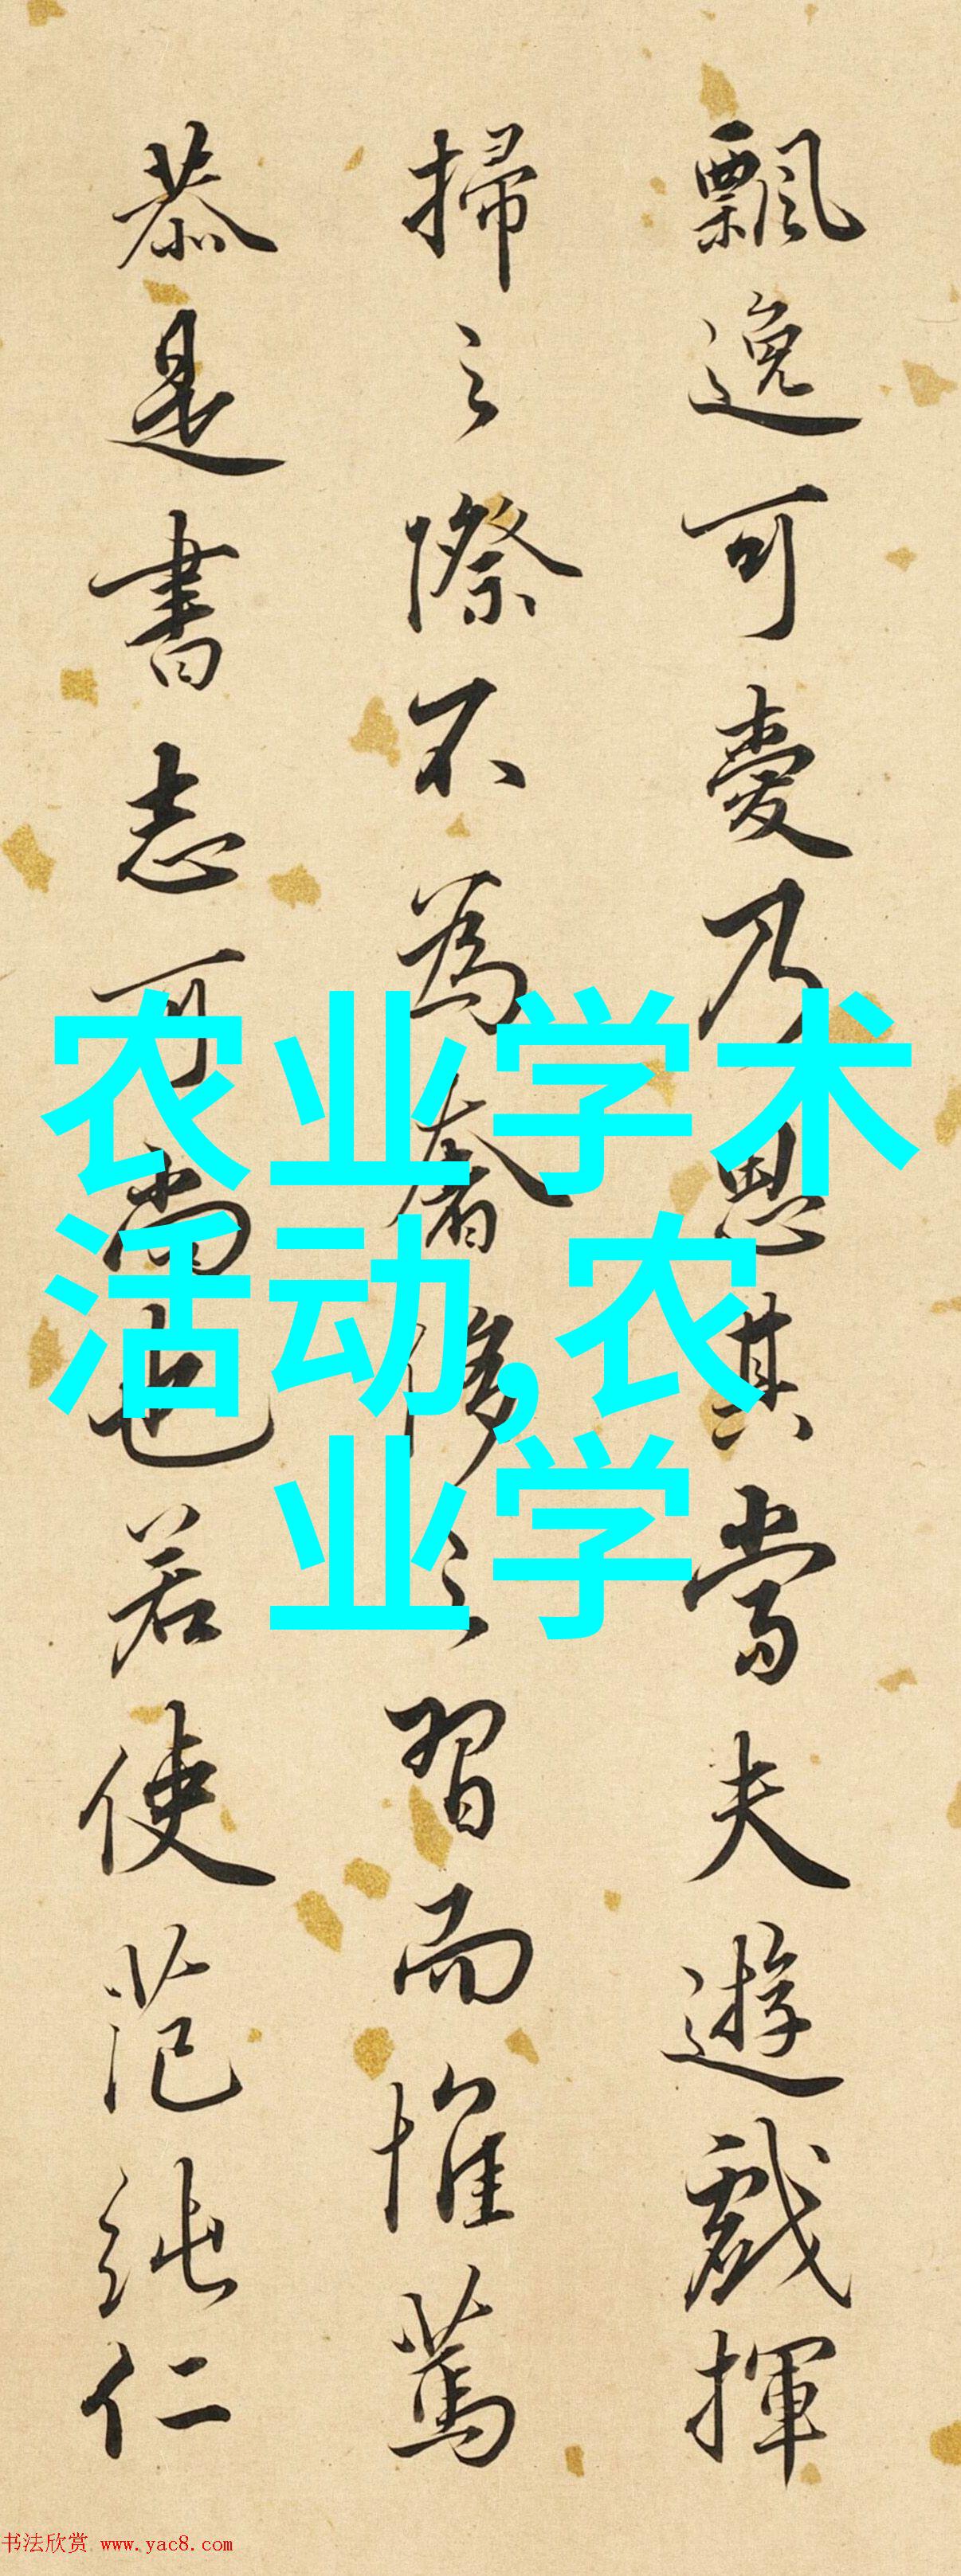 飄逸可愛乃思其當夫遊戲揮
掃之際不為奢侈之習而惟篤
恭是書志可尚也若使范純仁
农业学术
活动,农
业学
书法欣赏 www.yac8.com